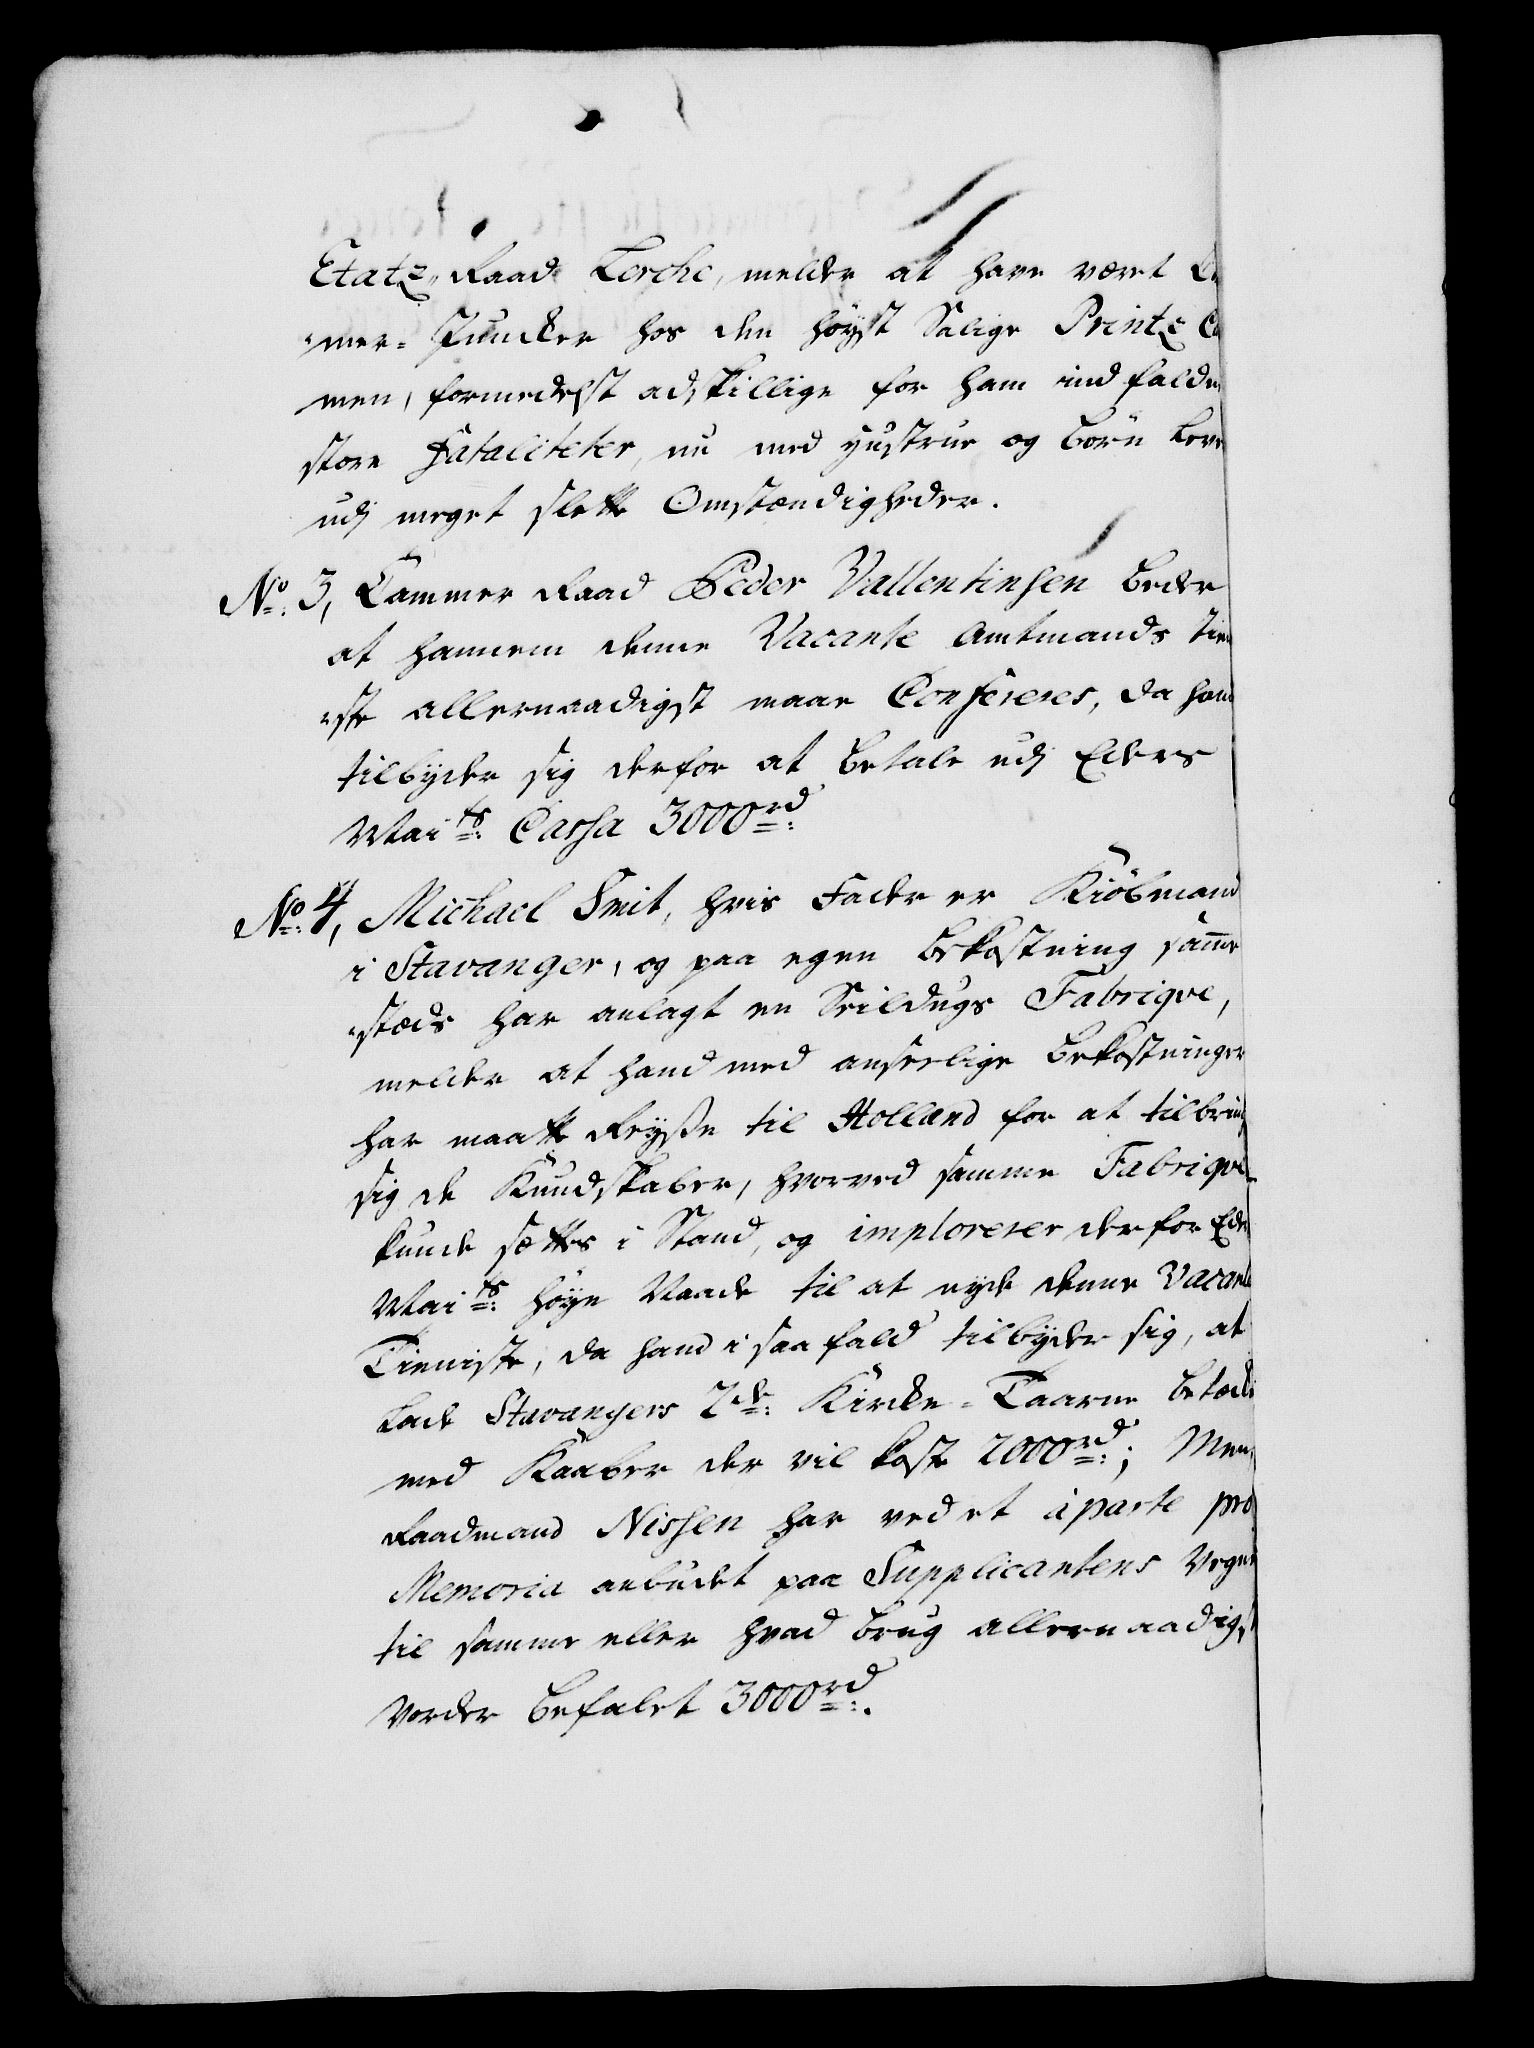 Etatz-Raad Lerche, melder at have været
mer-Juncker hos den höyst Salige Printz
men, formedelst adskillige for ham indfald
store Fataliteter, nu med Hustrue og Börn lev
udj meget slette Omstændigheder.
No: 3, Cammer Raad Peder Vallentinsen beder
at hannem denne Vacante Amtmands Tie
ste allernaadigst maae Confereres, da hand
tilbyder sig derfor at betale udj Eders
Maits: Cassa 3000rd:
No: 4, Michael Smit, hvis Fader er Kiöbmand
i Stavanger, og paa egen bekostning samme
stæds har anlagt en Seildugs Fabriqve,
melder at hand med anseelige bekostninger
har maatte Reysse til Holland for at tilbring
sig de Kundskaber, hvorved samme Fabriqve
kunde sættes i Stand, og imploreres derfor Ed
Maits: höye Naade til at nyde denne Vacante
Tieniste, da hand i saa fald tilbyder sig, at
lade Stavangers 2de: Kircke-Taarne betæck
med Kaaber der vil koste 2000rd:; Men
Raadmand Nissen har ved et aparte pro
Memoria anbudet paa Supplicantens Vegne
til samme eller hvad brug allernaadigst
vorder befalet 3000rd:.